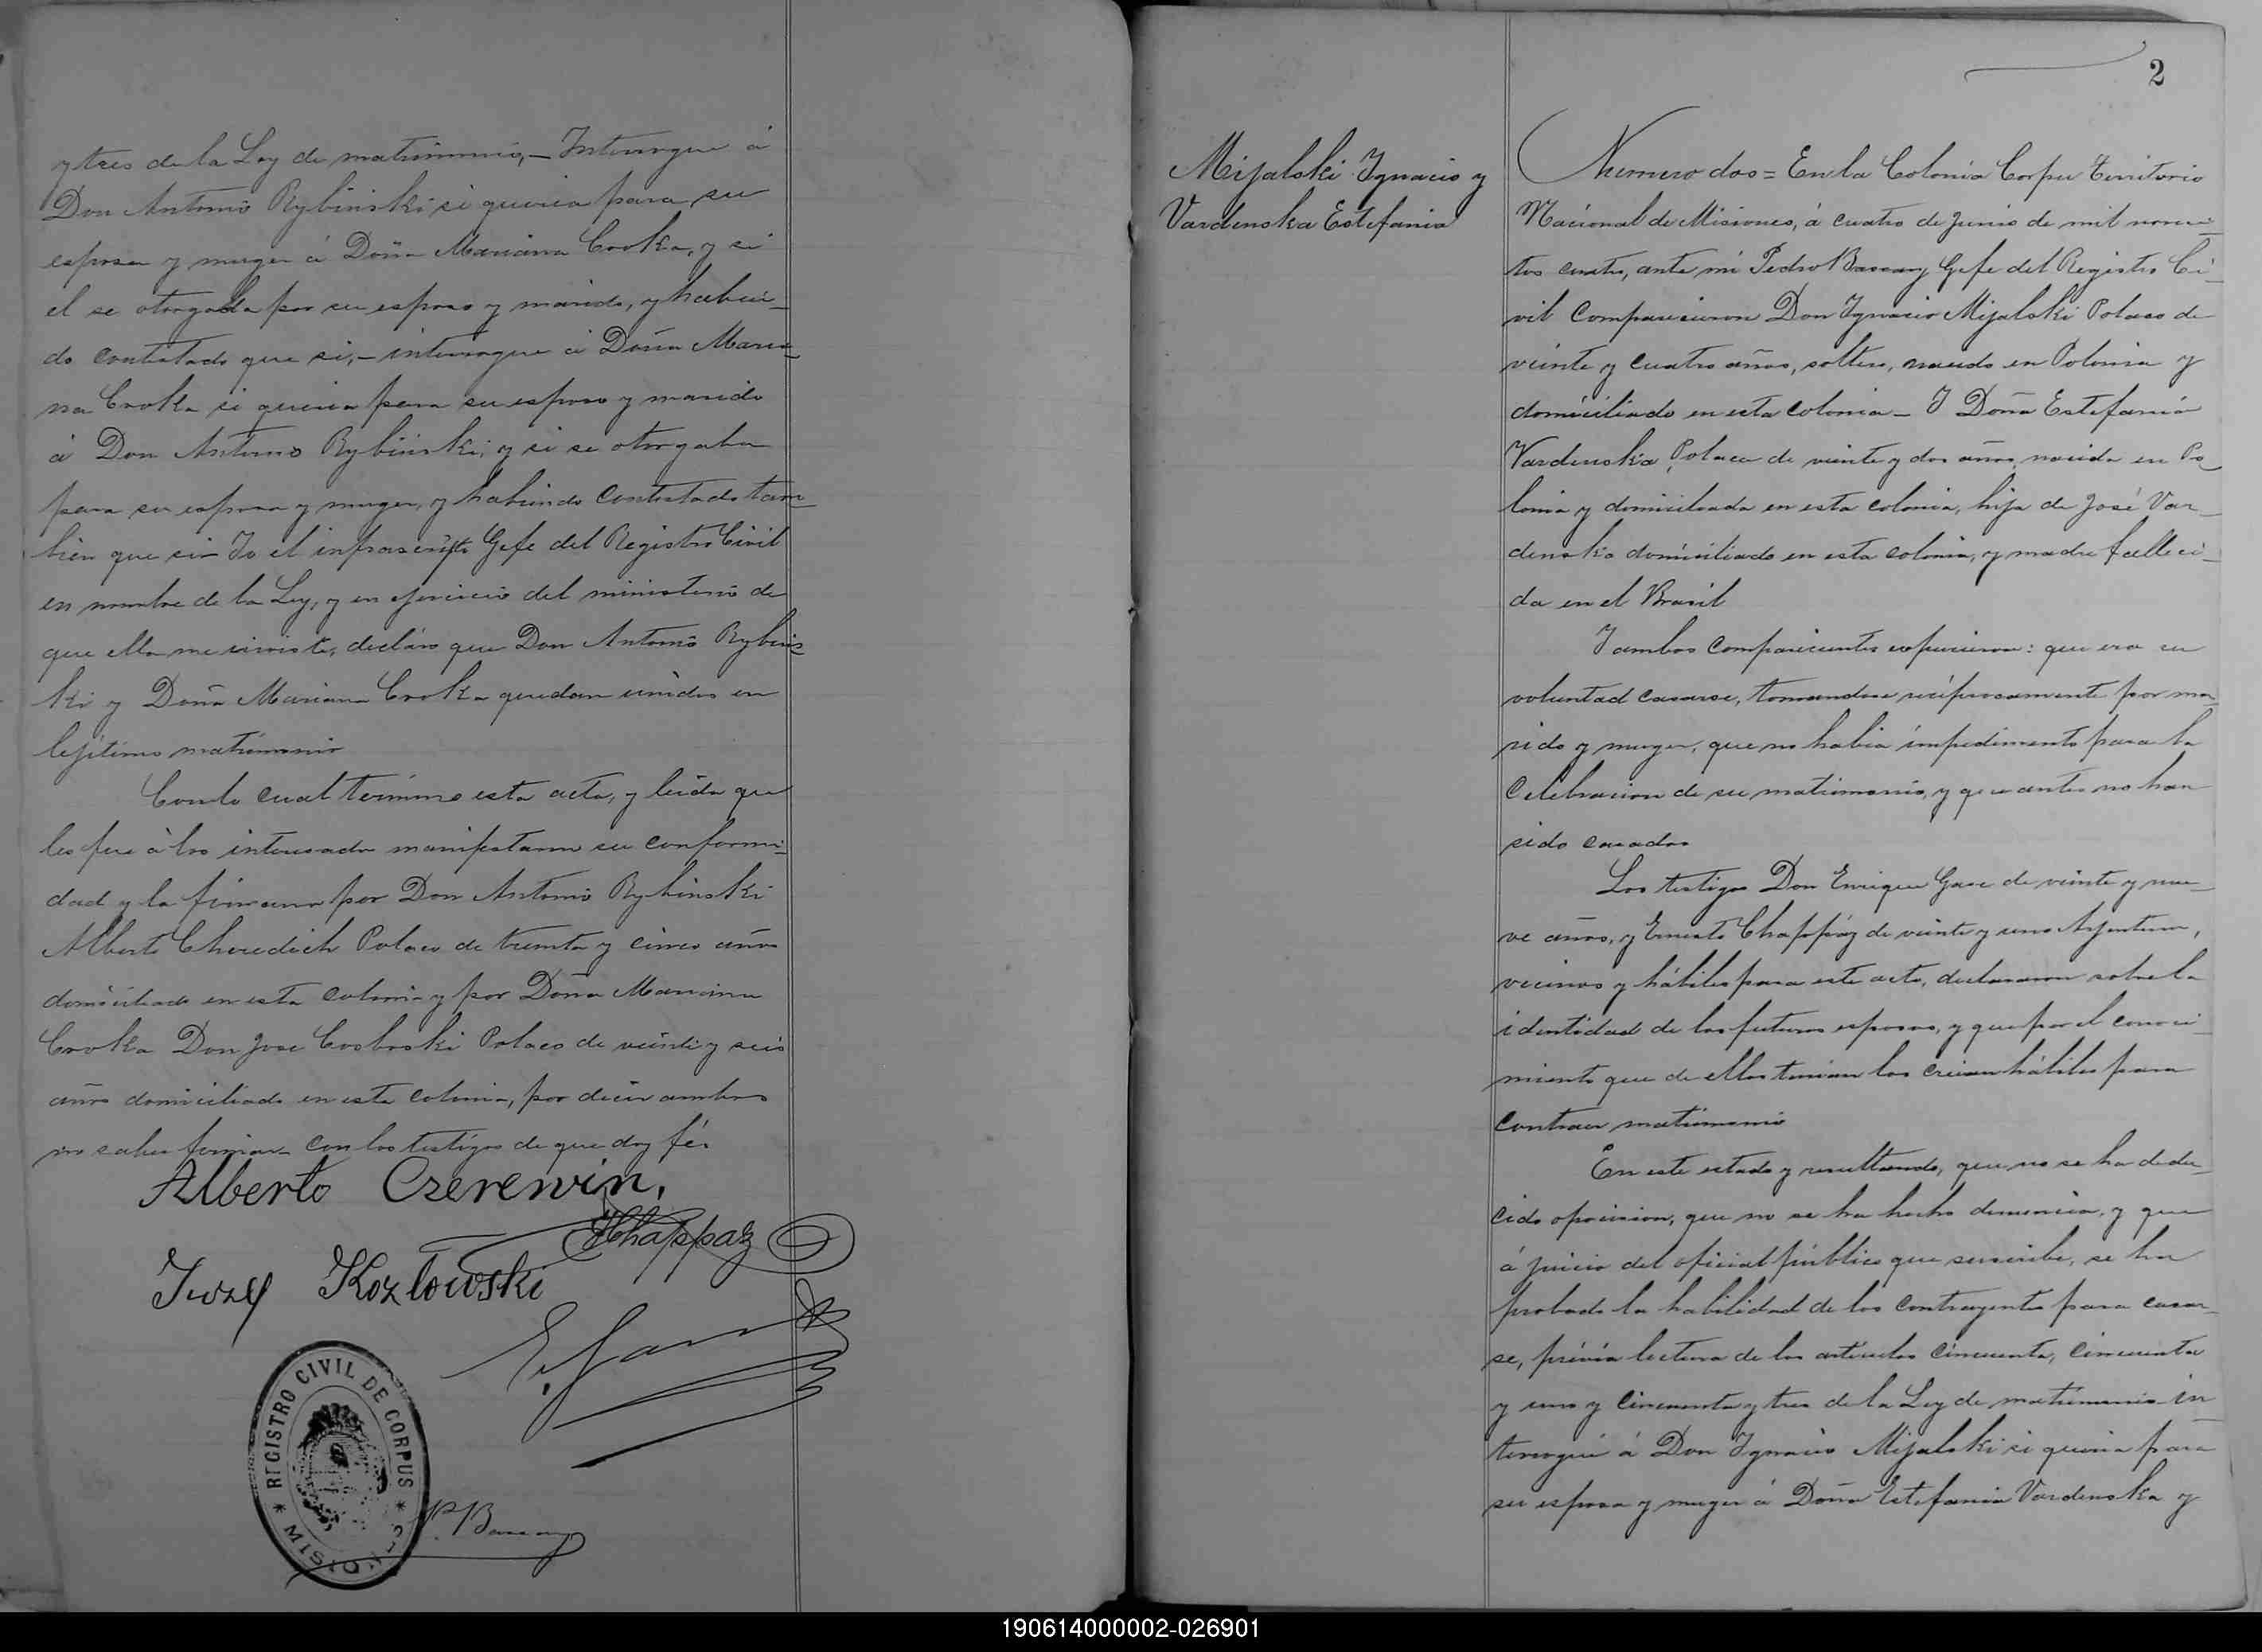 y tres de la Ley de matrimonio,- Interrogue á
Don Antonio Rybinski si queria para su
esposa y muger á Doña Mariana Croka, y si
el se otorgaba por su esposo y marido, y habien-
do contestado que si,- interrogue á Doña Maria-
na Croka si queria para su esposo y marido
á Don Antonio Rybinski, y si se otorgaba
para su esposa y muger, y habiendo contestado tam-
bien que si- Yo el infrascripto Gefe del Registro Civil
en nombre de la Ley, y en ejercicio del ministerio de
que ella me inviste, declaro que Don Antonio Rybins-
ki y Doña Mariana Croka quedan unidos en
lejitimo matrimonio
Con lo cual termino esta acta, y leida que
les fue á los interesados manifestaron su conformi-
dad y la firmaron por Don Antonio Rybinski
Alberto Cheredich Polaco de treinta y cinco años
domiciliado en esta colonia y por Doña Mariana
Croka Don Jose Cosloski Polaco de veinte y seis
años domiciliado en esta colonia, por decir ambos
no saber firmar- con los testigos de que doy fé.
Alberto Czerewin,
EChappaz
Juzef Kozlowski
E. Gar
REGISTRO CIVIL DE CORPUS
* MISIONES *
P. Bascary
2
Mijalski Ignacio y
Vardenska Estefania
Numero dos = En la Colonia Corpu Territorio
Nacional de Misiones, á cuatro de Junio de mil novecien-
tos cuatro, ante mi Pedro Bascary Gefe del Registro Ci-
vil Comparecieron Don Ignacio Mijalski Polaco de
veinte y cuatro años, soltero, nacido en Polonia y
domiciliado en esta colonia- I Doña Estefania
Vardenska, Polaca de veinte y dos años, nacida en Po-
lonia y domiciliada en esta colonia, hija de José Var-
denska domiciliado en esta colonia, y madre falleci-
da en el Brasil
I ambos comparecientes expusieron: que era su
voluntad casarse, tomandose reciprocamente por ma-
rido y muger, que no habia impedimento para la
Celebracion de su matrimonio, y que antes no han
sido casados
Los testigos Don Enrique Gare de veinte y nue-
ve años, y Ernesto Chappáz de veinte y uno Arjentinos,
vecinos y hábiles para este acto, declararon sobre la
identidad de los futuros esposos, y que por el conoci-
miento que de ellos tenian los creian hábiles para
contraer matrimonio
En este estado y resultando, que no se ha dedu-
cido oposicion, que no se ha hecho denuncia, y que
á juicio del oficial público que suscribe, se ha
probado la habilidad de los contrayentes para casar-
se, prévia lectura de los articulos cincuenta, cincuenta
y uno y cincuenta y tres de la Ley de matrimonio in-
terrogué á Don Ignacio Mijalski si queria para
su esposa y muger á Doña Estefania Vardenska y
190614000002-026901